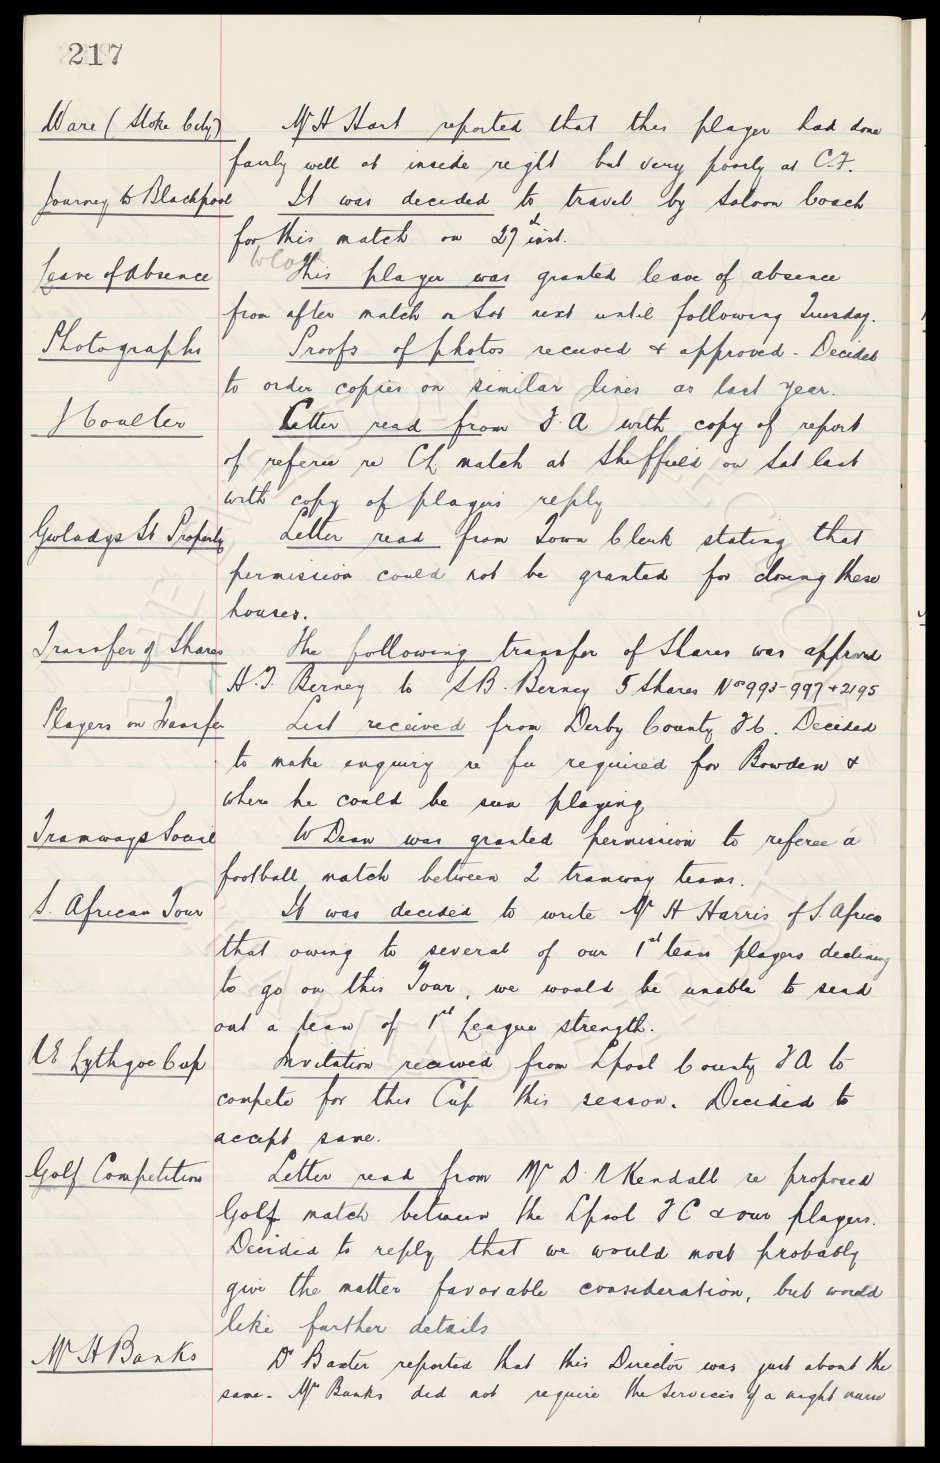 217
Ware (Stoke City) Mr H Hart reported that this player had done
fairly well at inside right but very poorly at C.F.
Journey to Blackpool It was decided to travel by Saloon Coach
for this match on 27th inst.
Leave of Absence This player was granted leave of absence
from after match on Sat next until following Tuesday.
Photographs Proofs of photos received & approved - Decided
to order copies on similar lines as last year.
J Coulter Letter read from F.A with copy of report
of referee re Ch match at Sheffield on Sat last
with copy of players reply
Gwladys St Property Letter read from Town Clerk stating that
permission could not be granted for closing these
houses.
Transfer of Shares The following transfer of Shares was approved
H.T. Berney to S B. Berney 5 Shares Nos 993-997 & 2195
Players on Transfer List received from Derby County F C. Decided
to make enquiry re fee required for Bowden &
where he could be seen playing
Tramways Social W Dean was granted permission to referee a
football match between 2 tramway teams.
S. African Tour It was decided to write Mr H Harris of S. Africa
that owing to several of our 1st team players declining
to go on this Tour, we would be unable to send
out a team of 1st League strength.
Lythgoe Cup Invitation received from Lpool County F A to
compete for this Cup this season. Decided to
accept same.
Golf Competition Letter read from Mr D. N Kendall re proposed
Golf match between the Lpool F C & our players.
Decided to reply that we would most probably
give the matter favorable consideration, but would
like further details
Mr H Banks Dr Baxter reported that this Director was just about the
same. Mrs Banks did not require the services of a night nurse